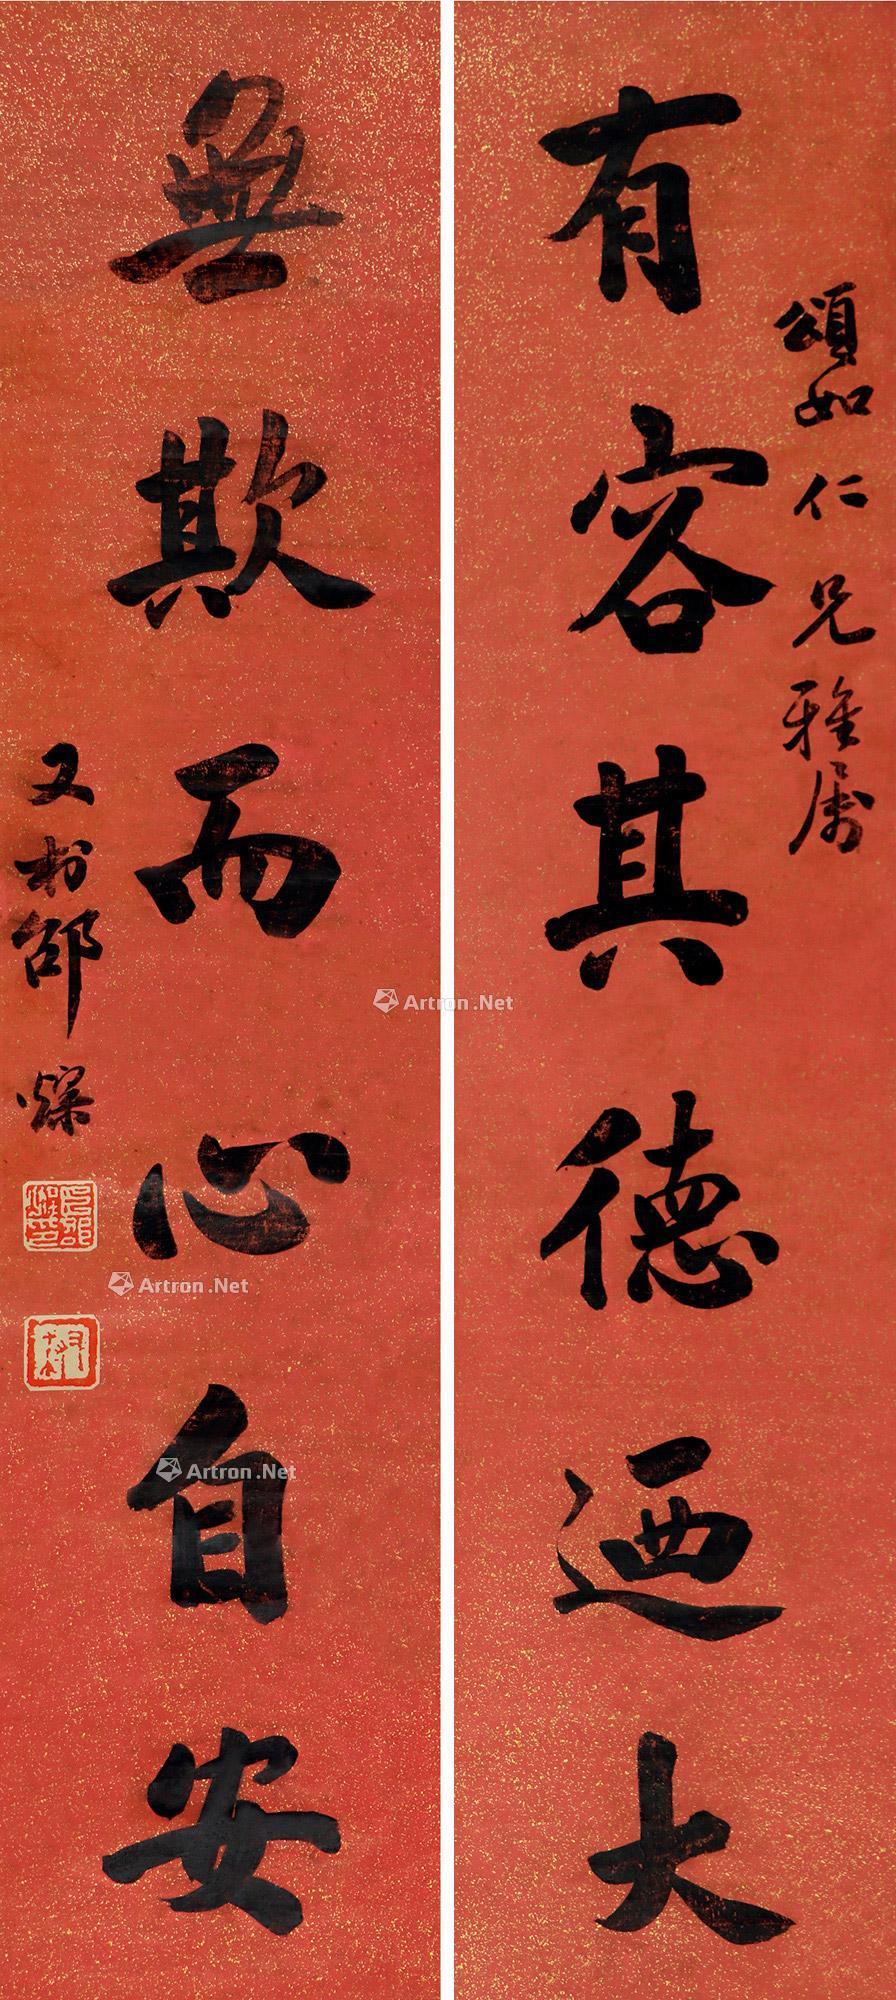 頌如仁兄雅属
有容其德迺大
無欺而心自安
又村邵燦
Artron.Net
Artron.Net
Artron.Net